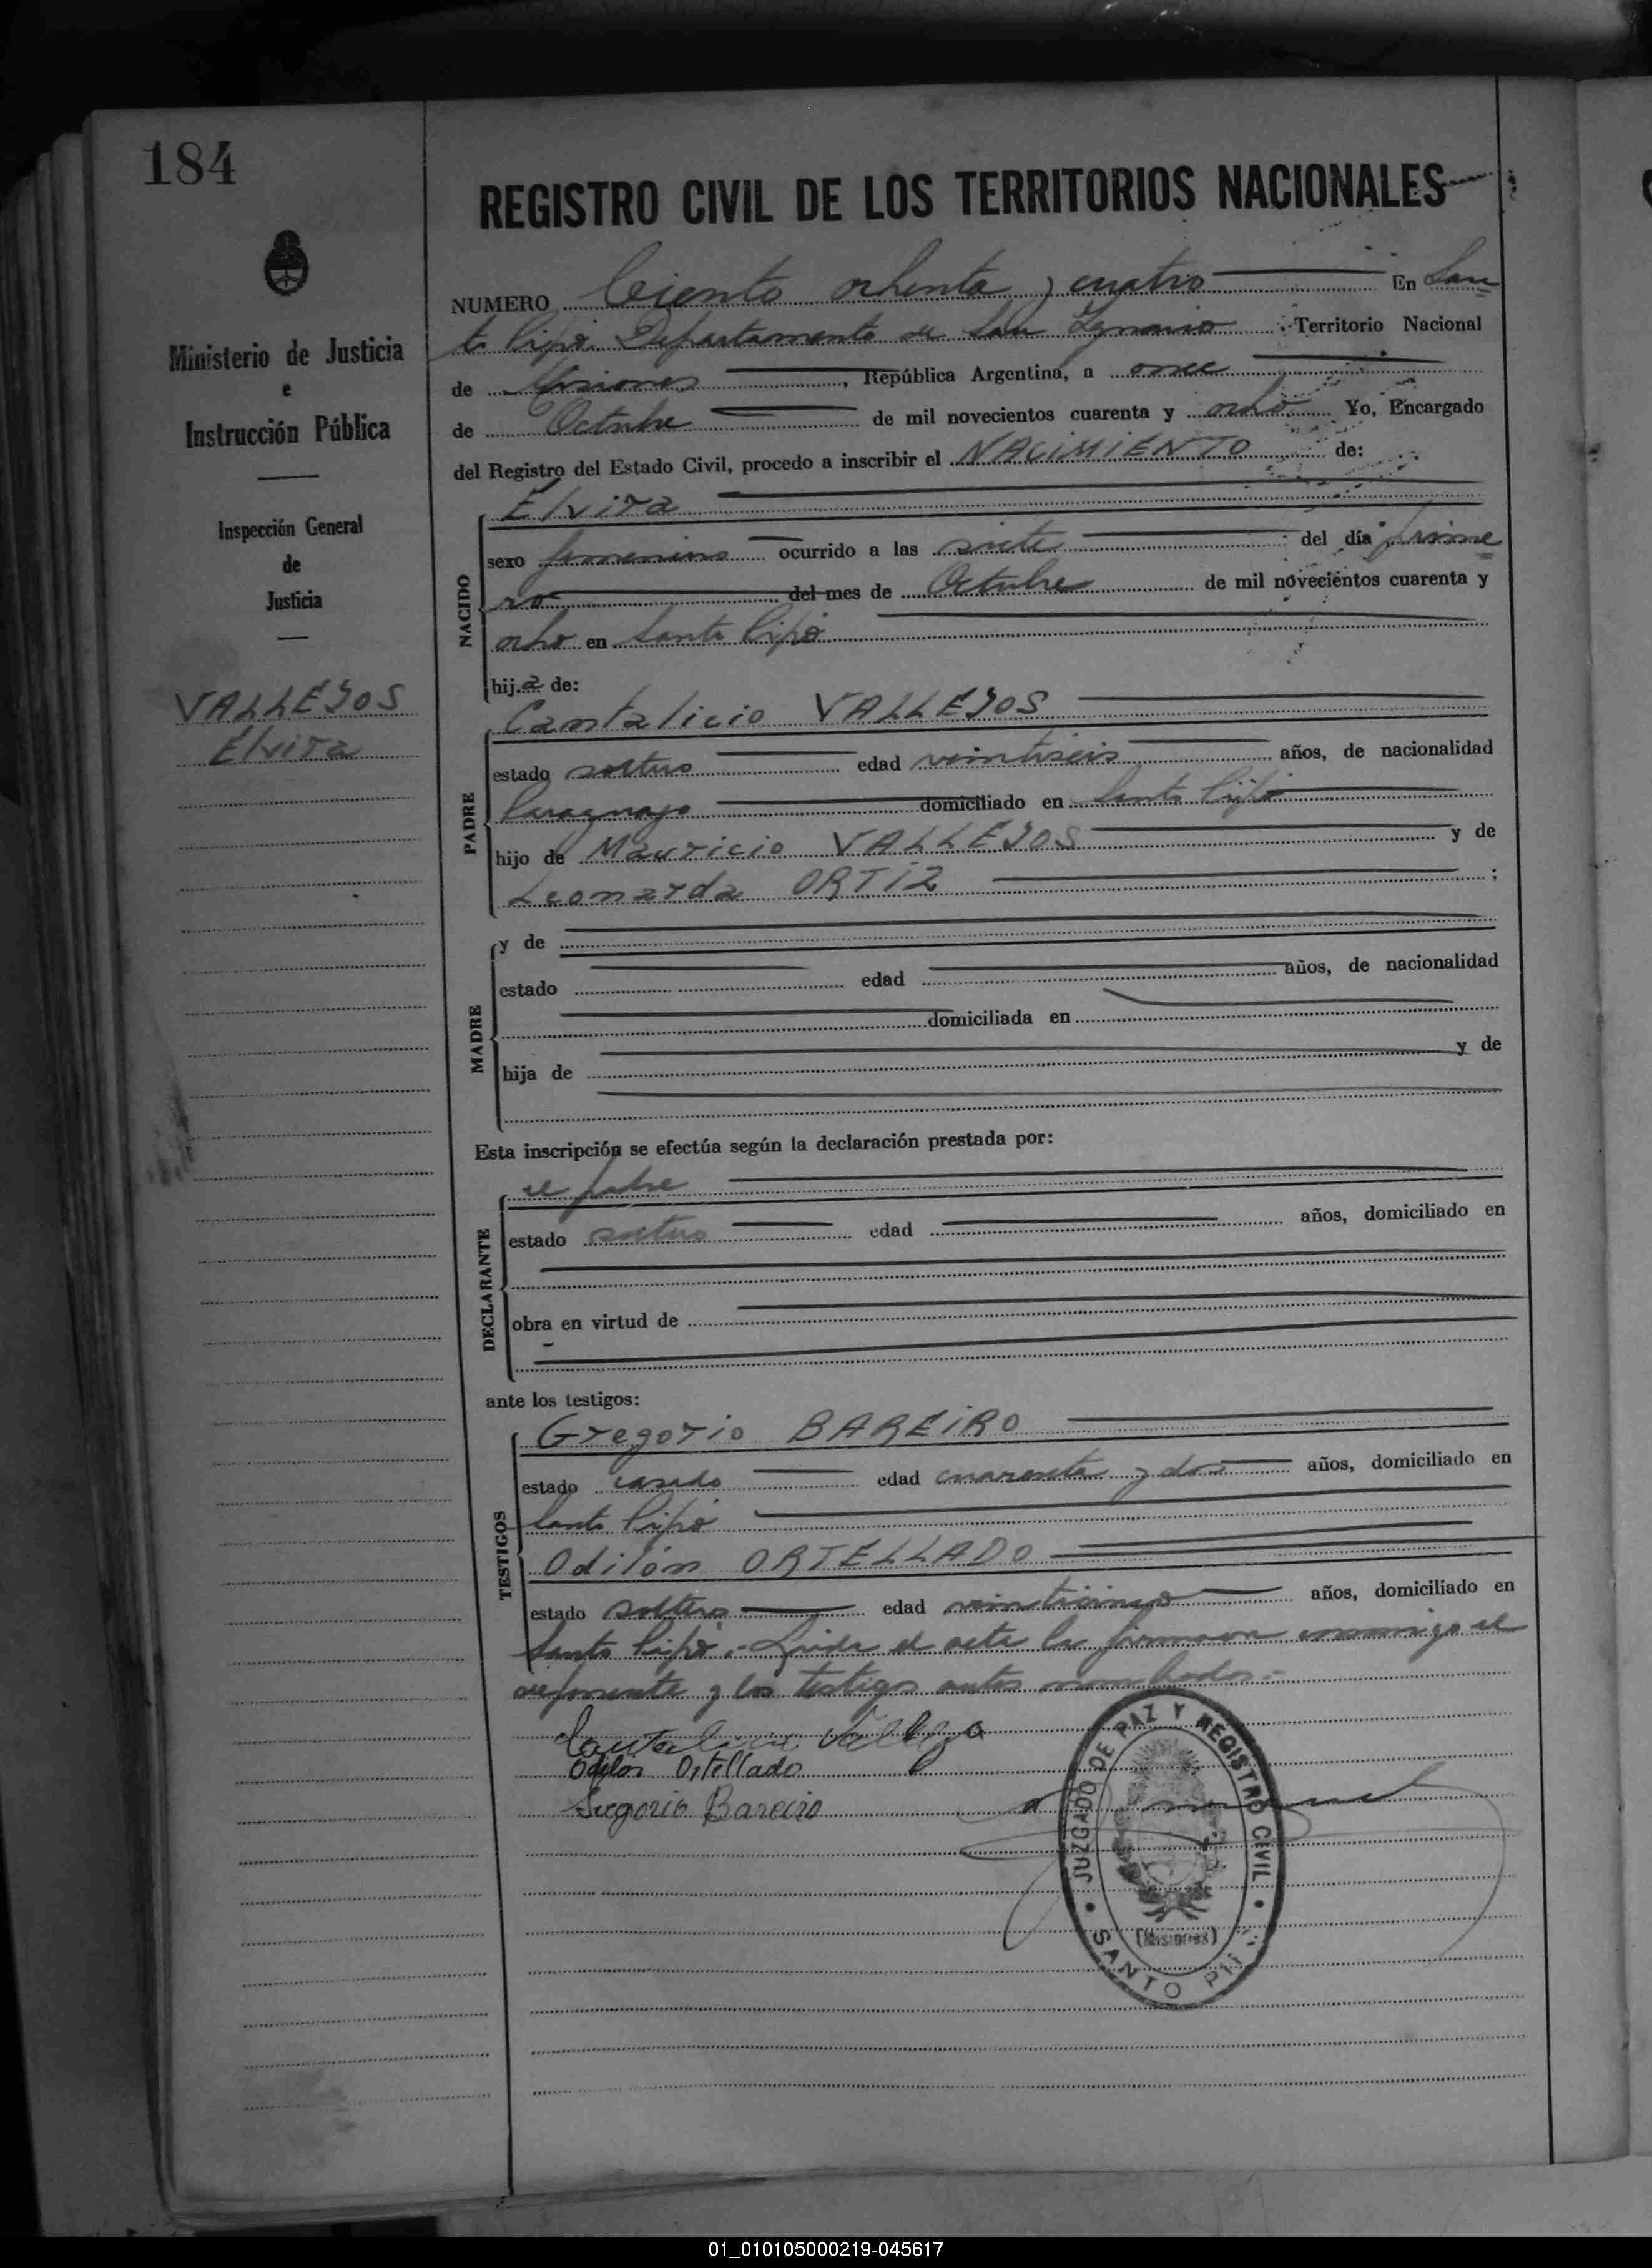 184
REGISTRO CIVIL DE LOS TERRITORIOS NACIONALES
Ministerio de Justicia
e
Instrucción Pública
Inspección General
de
Justicia
VALLEJOS
Elvira
NUMERO Ciento ochenta y cuatro En San
to Pipó Departamento de San Ignacio Territorio Nacional
de Misiones, República Argentina, a once
de Octubre de mil novecientos cuarenta y ocho Yo, Encargado
del Registro del Estado Civil, procedo a inscribir el NACIMIENTO de:
NACIDO
Elvira
sexo femenino ocurrido a las siete del día prime
ro del mes de Octubre de mil novecientos cuarenta y
ocho en Santo Pipó
hij.a de:
PADRE
Cantalicio VALLEJOS
estado soltero edad veintiseis años, de nacionalidad
Paraguayo domiciliado en Santo Pipó
hijo de Mauricio VALLEJOS y de
Leonarda ORTIZ ;
MADRE
y de
estado edad años, de nacionalidad
domiciliada en
hija de y de
Esta inscripción se efectúa según la declaración prestada por:
DECLARANTE
el padre
estado soltero edad años, domiciliado en
obra en virtud de
ante los testigos:
TESTIGOS
Gregorio BAREIRO
estado casado edad cuarenta y dos años, domiciliado en
Santo Pipó
Odilón ORTELLADO
estado soltero edad veinticinco años, domiciliado en
Santo Pipó.- Leída el acta la firmaron conmigo el
exponente y los testigos antes nombrados.-
Cantalicio Vallejo
Odilon Ortellado
Gregorio Bareiro
JUZGADO DE PAZ Y REGISTRO CIVIL
(Misiones)
SANTO PIPÓ
01_010105000219-045617